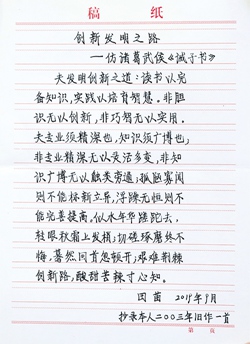 稿 纸
创新发明之路
——仿诸葛武侯《诫子书》
夫发明创新之道：读书以完
备知识，实践以培育智慧。非胆
识无以创新，非巧智无以实用。
夫专业须精深也，知识须广博也；
非专业精深无以灵活多变，非知
识广博无以触类旁通；孤陋寡闻
则不能标新立异，浮躁无恒则不
能完善提高。似水年华蹉跎去，
转眼秋霜上发梢；切磋琢磨终不
悔，蓦然回首怨顿开；艰难荆棘
创新路，酸甜苦辣寸心知。
闵苗 2019年9月
抄录本人二〇〇三年旧作一首
第 页